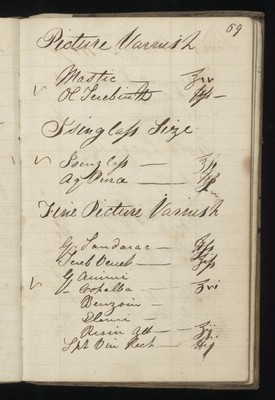 69
Picture Varnish
Mastic — ℥iv
Ol Terebinth
Isinglass Size
Isinglass —
Aq Pura —
Fine Picture Varnish
G Sandarac —
Tereb Venet —
G Animi
" Copaiba — ℥vi
Benzoin —
Elemi —
Resin Alb —
Spt Vin Rect —